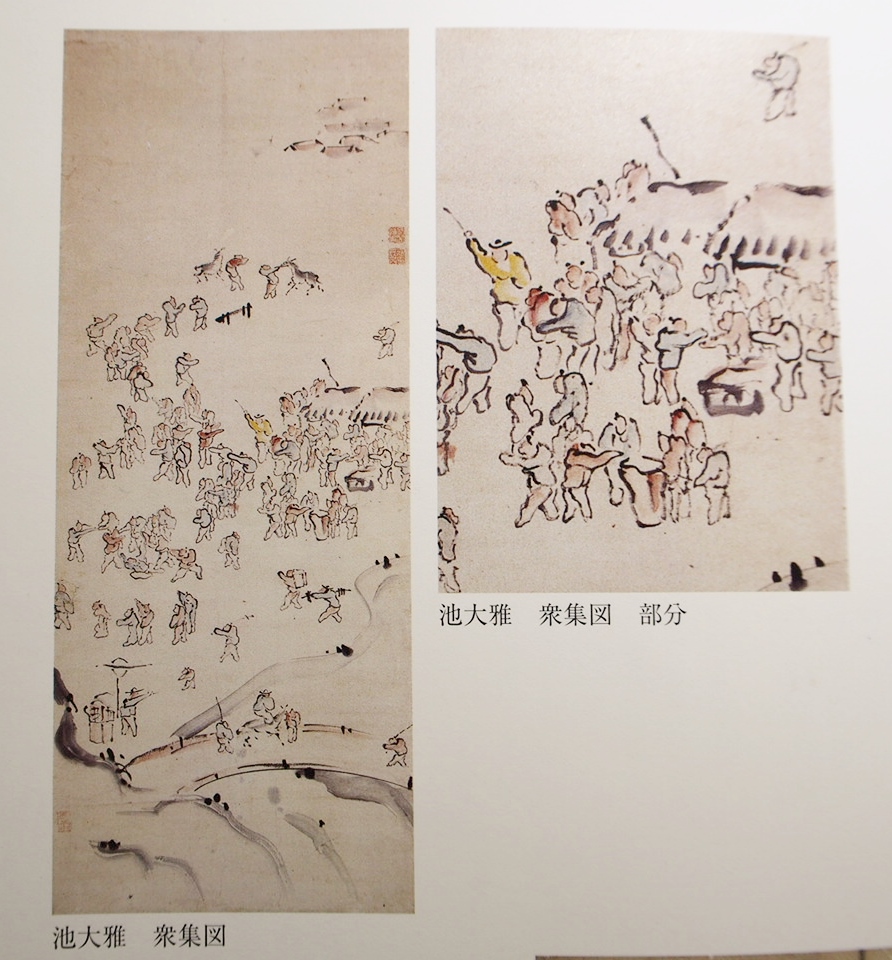 池大雅　衆集図
池大雅　衆集図　部分